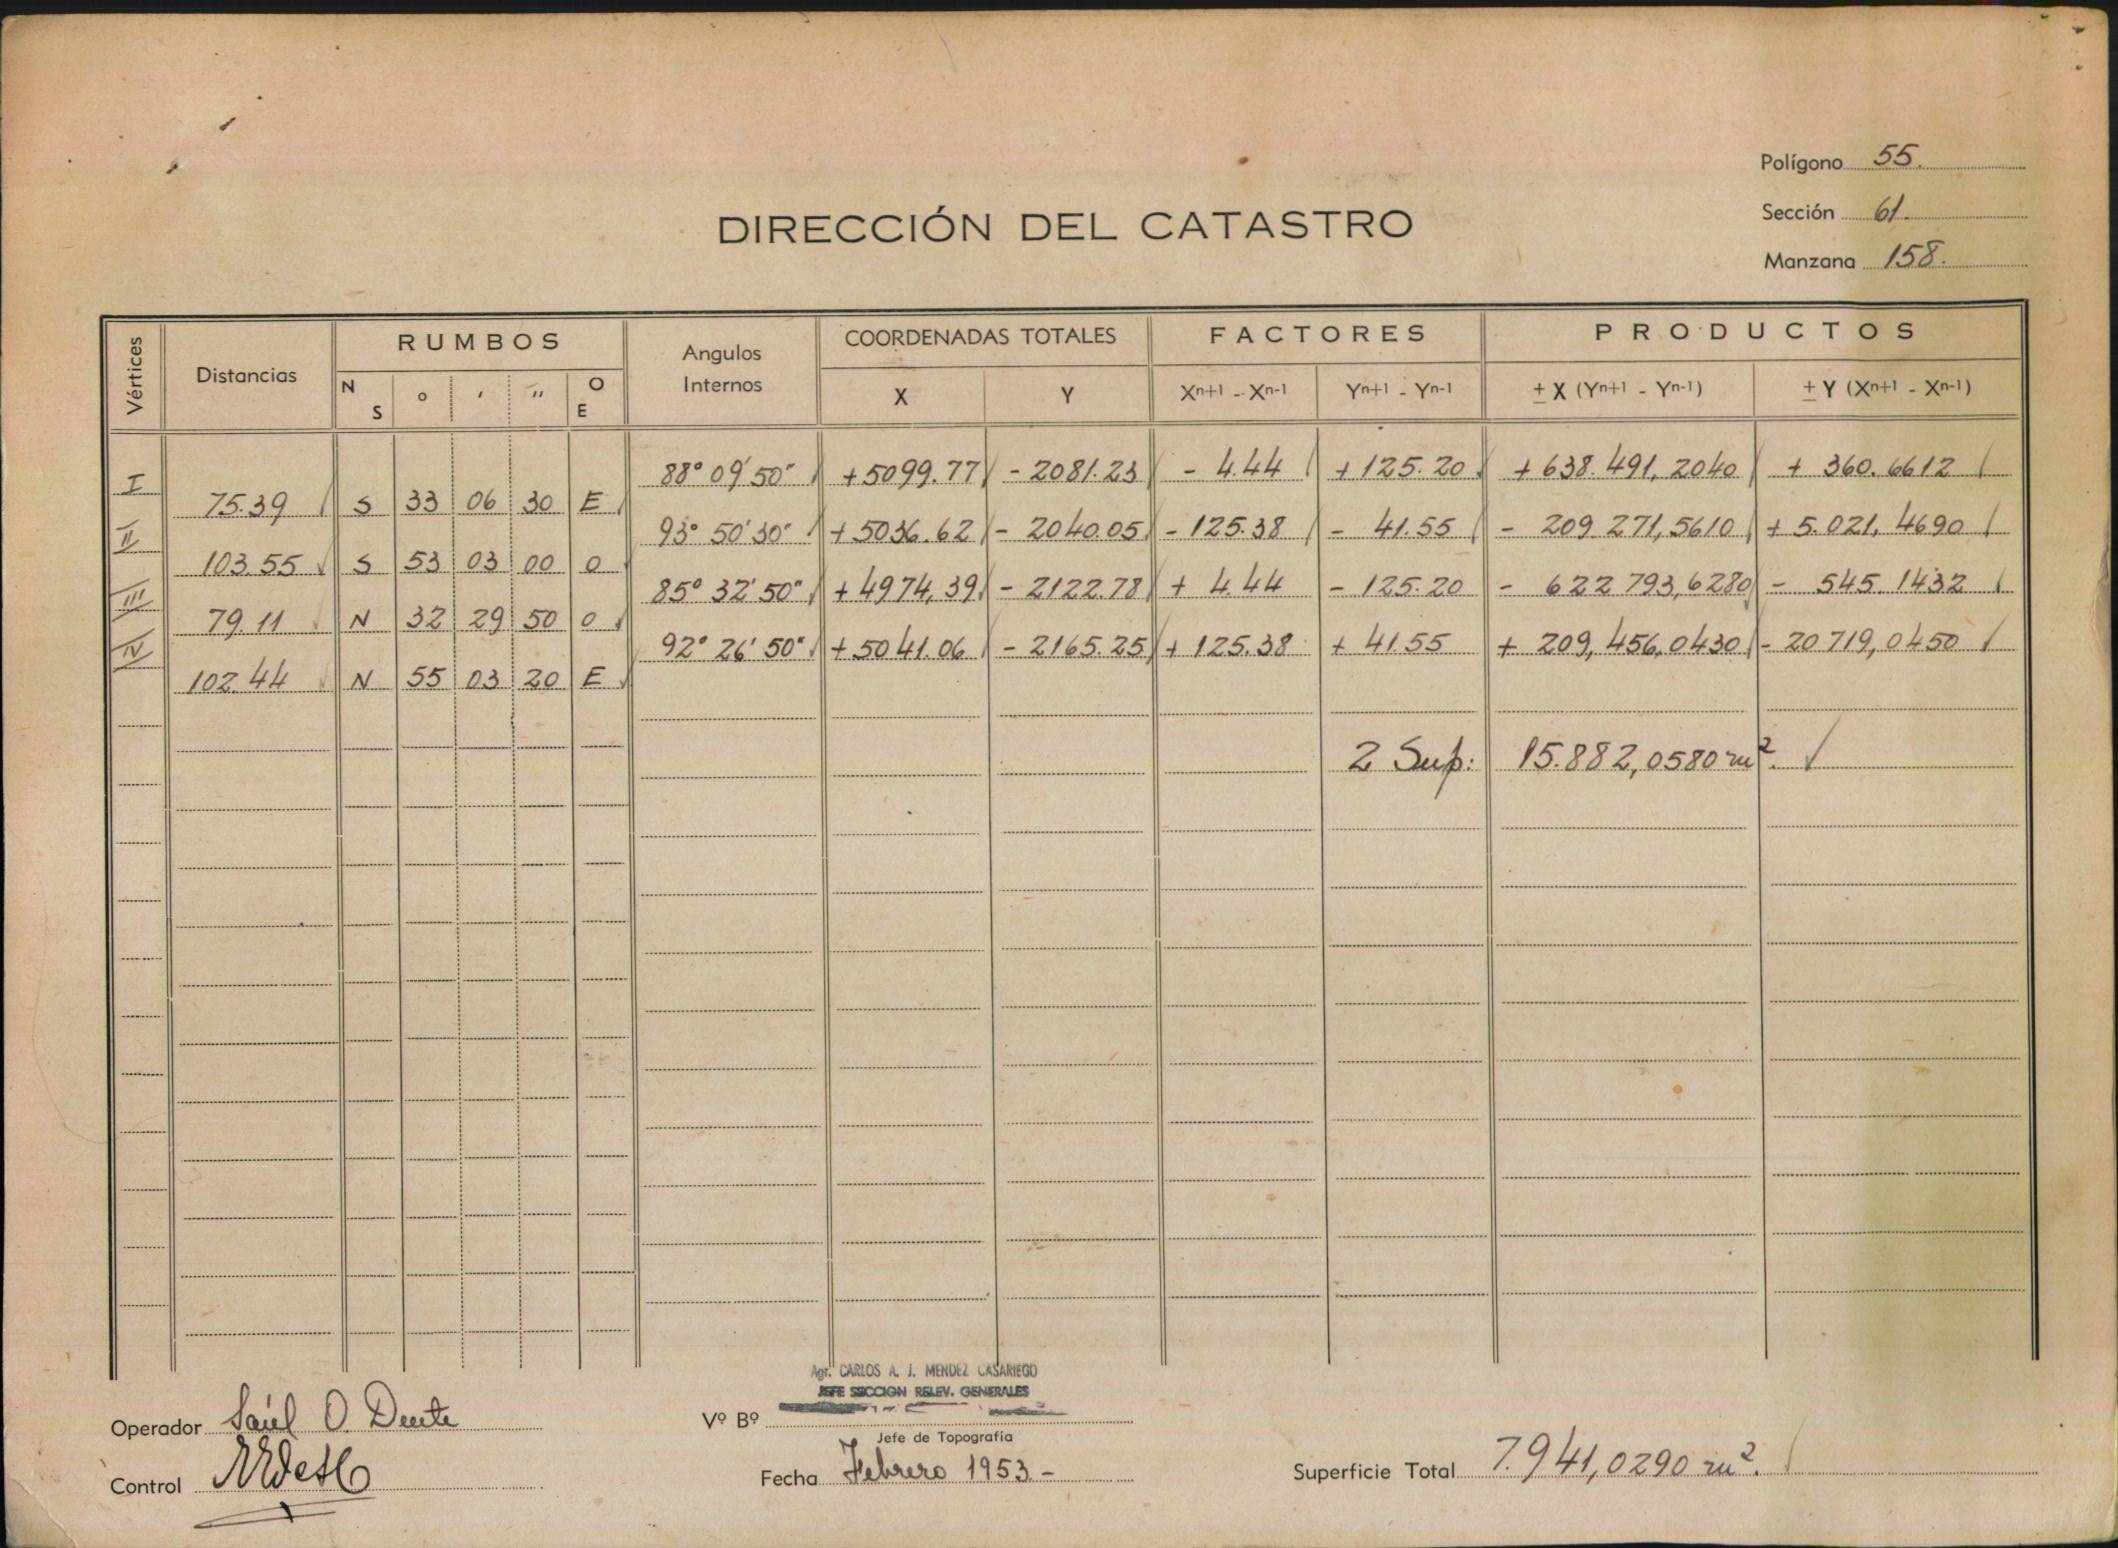 Polígono 55.
Sección 61.
DIRECCIÓN DEL CATASTRO
Manzana 158.
Vértices Distancias RUMBOS Angulos Internos COORDENADAS TOTALES FACTORES PRODUCTOS
N S ° ' '' O E X Y Xⁿ⁺¹ - Xⁿ⁻¹ Yⁿ⁺¹ - Yⁿ⁻¹ ± X (Yⁿ⁺¹ - Yⁿ⁻¹) ± Y (Xⁿ⁺¹ - Xⁿ⁻¹)
I 88° 09' 50" +5099.77 - 2081.23 - 4.44 + 125.20 + 638.491,2040 + 360.6612
75.39 S 33 06 30 E
II 93° 50' 30" +5036.62 - 2040.05 - 125.38 - 41.55 - 209 271,5610 + 5.021,4690
103.55 S 53 03 00 O
III 85° 32' 50" +4974,39 - 2122.78 + 4.44 - 125.20 - 622 793,6280 - 545.1432
79.11 N 32 29 50 O
IV 92° 26' 50" +5041.06 - 2165.25 + 125.38 + 41.55 + 209,456,0430 - 20 719,0450
102.44 N 55 03 20 E
2 Sup: 15.882,0580 m².
Agr. CARLOS A. J. MENDEZ CASARIEGO
JEFE SECCION RELEV. GENERALES
Operador Saúl O. Dente
Vº Bº
Jefe de Topografía
Control
Fecha Febrero 1953 -
Superficie Total 7.941,0290 m².